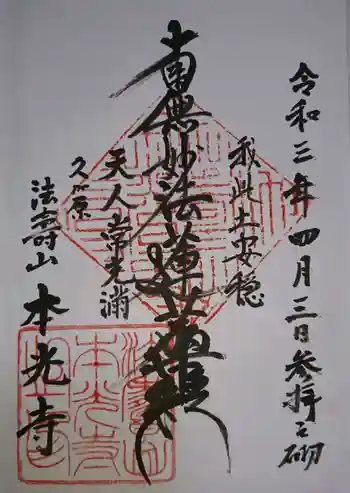 令和三年四月三日参拝之砌
我此土安穏
南無妙法蓮華経
天人常充満
久が原
法壽山 本光寺